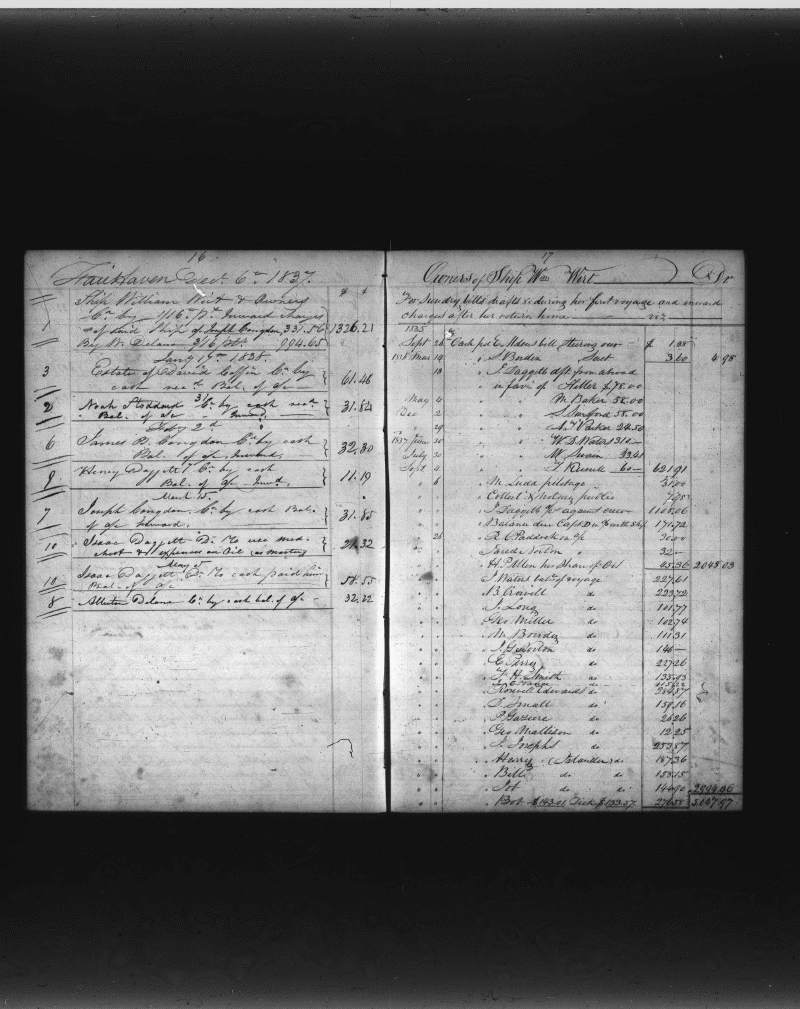 16
Fairhaven Decr. 6th 1837.
$ ¢
Ship William Wirt & Owners
1 Cr by 1/16 pt Inward charges
of said Ship of Joseph Congdon 331.56 1326.21
By W. Delano 3/16 994.65
Jany 19th 1838.
3 Estate of David Coffin Cr by
cash Bal. of a/c 61.46
31st
2 Noah Stoddard Cr by cash
Bal. of a/c Inward 31.84
Feby 2d
6 James B. Congdon Cr by cash
Bal. of a/c Inward, 32.30
9 Henry Daggett Cr by cash
Bal. of a/c Inwd. 11.19
March 15.
7 Joseph Congdon Cr by cash Bal.
of a/c Inward. 31.85
10 Isaac Daggett Dr To use med.
& expenses on Oil 21.32
May 5
10 Isaac Daggett Dr To cash paid him
Bal. of a/c 58.55
8 Allerton Delano Cr by cash bal. of a/c 32.22
17
Owners of Ship Wm Wirt Dr
For Sundry bills drafts &c during her first voyage and inward
charges after her return home viz
1835
Sept 26 Cash pd bill Steering oars $ 1.38
1836 Mar 14 " S. Borden 3.60 4.98
" 18 " I. Daggetts dft from abroad
" " in favr of Hiller $78.00
May 4 " M Baker 58.00
Dec 2 " S. Sanford 58.00
" 29 " Parker 24.50
1837 June 30 " W. B. Waters 310—
July 30 " W. Swain 33.41
Sept 4 " T. Russell 60— 621.91
" 6 " M Ludd pilotage 31.00
" " Collect & Notary public
" " I Daggett
" " Balance due Capt D 171.72
" 26 " R. C. Paddock on a/c 30.00
" " Norton " 32—
" " H. P. Allen his Share of Oil 45.36 2048.03
" " S. Waters balce of voyage 227.61
" " N. B. Crowell do 223.72
" " J. Long do 101.77
" " Geo Miller do 102.74
" " M Bowdey do 111.31
" " J. G. Norton do 146—
" " E. Perry do 227.26
" " H. Smith do
" " Roswell Edwards do
" " D. Small do 159.16
" " P. do 20.26
" " Geo Mattison do 12.25
" " J. Josephs do 253.87
" " Harry (Islander) do 187.36
" " Bill do do 153.15
" " Job do do 144.90 2994.96
" " Bob $143.01 Dick $133.57 276.58 5,047.97